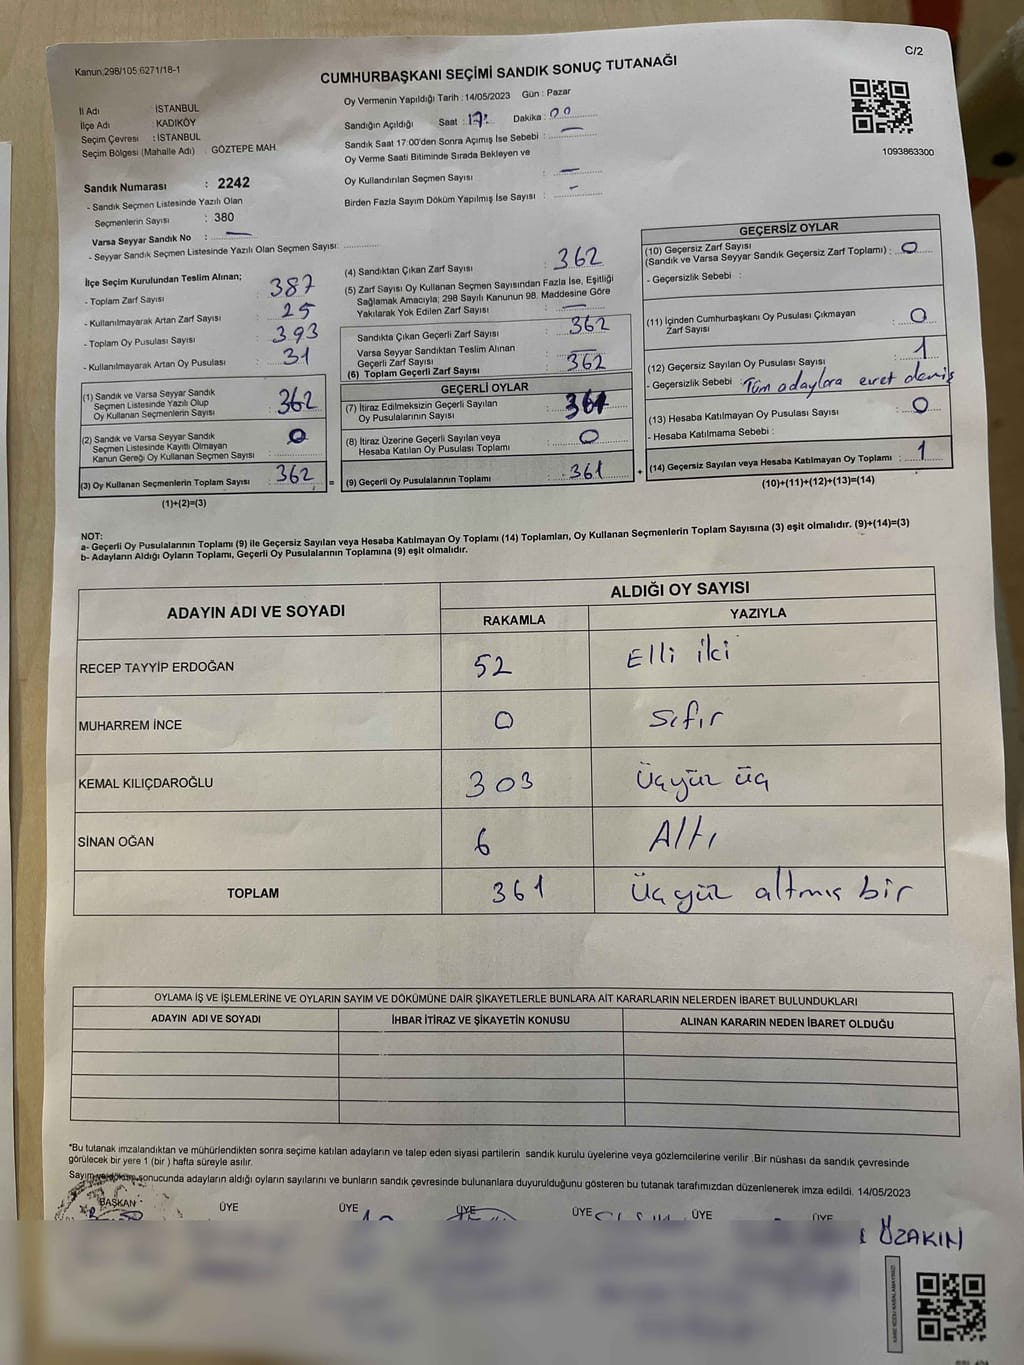 Kanun;298/105;6271/18-1
C/2
CUMHURBAŞKANI SEÇİMİ SANDIK SONUÇ TUTANAĞI
İl Adı : İSTANBUL
İlçe Adı : KADIKÖY
Seçim Çevresi : İSTANBUL
Seçim Bölgesi (Mahalle Adı) : GÖZTEPE MAH.
Sandık Numarası : 2242
- Sandık Seçmen Listesinde Yazılı Olan
Seçmenlerin Sayısı : 380
Varsa Seyyar Sandık No : —
- Seyyar Sandık Seçmen Listesinde Yazılı Olan Seçmen Sayısı:
Oy Vermenin Yapıldığı Tarih : 14/05/2023 Gün : Pazar
Sandığın Açıldığı Saat : 17: Dakika : 00
Sandık Saat 17:00'den Sonra Açımış İse Sebebi : —
Oy Verme Saati Bitiminde Sırada Bekleyen ve
Oy Kullandırılan Seçmen Sayısı : —
Birden Fazla Sayım Döküm Yapılmış İse Sayısı : —
1093863300
İlçe Seçim Kurulundan Teslim Alınan;
- Toplam Zarf Sayısı : 387
- Kullanılmayarak Artan Zarf Sayısı : 25
- Toplam Oy Pusulası Sayısı : 393
- Kullanılmayarak Artan Oy Pusulası : 31
(1) Sandık ve Varsa Seyyar Sandık
Seçmen Listesinde Yazılı Olup
Oy Kullanan Seçmenlerin Sayısı : 362
(2) Sandık ve Varsa Seyyar Sandık
Seçmen Listesinde Kayıtlı Olmayan
Kanun Gereği Oy Kullanan Seçmen Sayısı : 0
(3) Oy Kullanan Seçmenlerin Toplam Sayısı : 362 =
(1)+(2)=(3)
(4) Sandıktan Çıkan Zarf Sayısı : 362
(5) Zarf Sayısı Oy Kullanan Seçmen Sayısından Fazla İse, Eşitliği
Sağlamak Amacıyla; 298 Sayılı Kanunun 98. Maddesine Göre
Yakılarak Yok Edilen Zarf Sayısı : —
Sandıkta Çıkan Geçerli Zarf Sayısı : 362
Varsa Seyyar Sandıktan Teslim Alınan
Geçerli Zarf Sayısı : —
(6) Toplam Geçerli Zarf Sayısı : 362
GEÇERLİ OYLAR
(7) İtiraz Edilmeksizin Geçerli Sayılan
Oy Pusulalarının Sayısı : 361
(8) İtiraz Üzerine Geçerli Sayılan veya
Hesaba Katılan Oy Pusulası Toplamı : 0
(9) Geçerli Oy Pusulalarının Toplamı : 361 +
GEÇERSİZ OYLAR
(10) Geçersiz Zarf Sayısı
(Sandık ve Varsa Seyyar Sandık Geçersiz Zarf Toplamı) : 0
- Geçersizlik Sebebi :
(11) İçinden Cumhurbaşkanı Oy Pusulası Çıkmayan
Zarf Sayısı : 0
(12) Geçersiz Sayılan Oy Pusulası Sayısı : 1
- Geçersizlik Sebebi : Tüm adaylara evet demiş
(13) Hesaba Katılmayan Oy Pusulası Sayısı : 0
- Hesaba Katılmama Sebebi :
(14) Geçersiz Sayılan veya Hesaba Katılmayan Oy Toplamı : 1
(10)+(11)+(12)+(13)=(14)
NOT:
a- Geçerli Oy Pusulalarının Toplamı (9) ile Geçersiz Sayılan veya Hesaba Katılmayan Oy Toplamı (14) Toplamları, Oy Kullanan Seçmenlerin Toplam Sayısına (3) eşit olmalıdır. (9)+(14)=(3)
b- Adayların Aldığı Oyların Toplamı, Geçerli Oy Pusulalarının Toplamına (9) eşit olmalıdır.
ADAYIN ADI VE SOYADI
ALDIĞI OY SAYISI
RAKAMLA YAZIYLA
RECEP TAYYİP ERDOĞAN 52 Elli iki
MUHARREM İNCE 0 Sıfır
KEMAL KILIÇDAROĞLU 303 Üçyüz üç
SİNAN OĞAN 6 Altı
TOPLAM 361 Üçyüz altmış bir
OYLAMA İŞ VE İŞLEMLERİNE VE OYLARIN SAYIM VE DÖKÜMÜNE DAİR ŞİKAYETLERLE BUNLARA AİT KARARLARIN NELERDEN İBARET BULUNDUKLARI
ADAYIN ADI VE SOYADI İHBAR İTİRAZ VE ŞİKAYETİN KONUSU ALINAN KARARIN NEDEN İBARET OLDUĞU
*Bu tutanak imzalandıktan ve mühürlendikten sonra seçime katılan adayların ve talep eden siyasi partilerin sandık kurulu üyelerine veya gözlemcilerine verilir .Bir nüshası da sandık çevresinde
görülecek bir yere 1 (bir ) hafta süreyle asılır.
Sayım ve döküm sonucunda adayların aldığı oyların sayılarını ve bunların sandık çevresinde bulunanlara duyurulduğunu gösteren bu tutanak tarafımızdan düzenlenerek imza edildi. 14/05/2023
BAŞKAN ÜYE ÜYE ÜYE ÜYE ÜYE ÜYE
ÖZAKIN